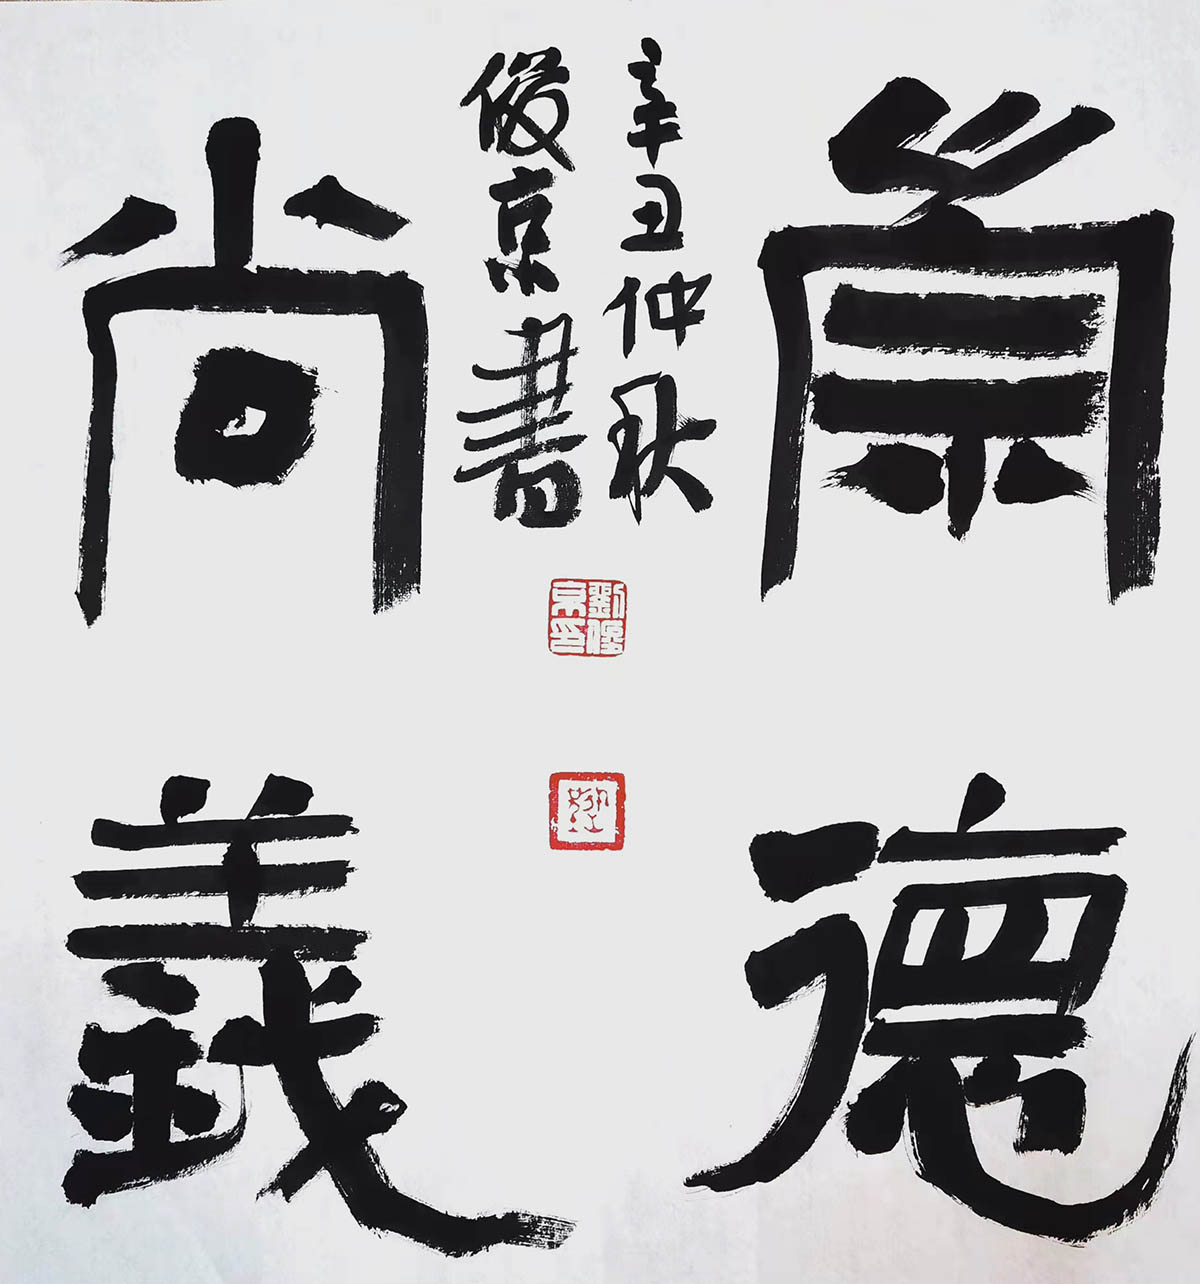 崇德
尚義
辛丑仲秋
俊京書
劉俊
京印